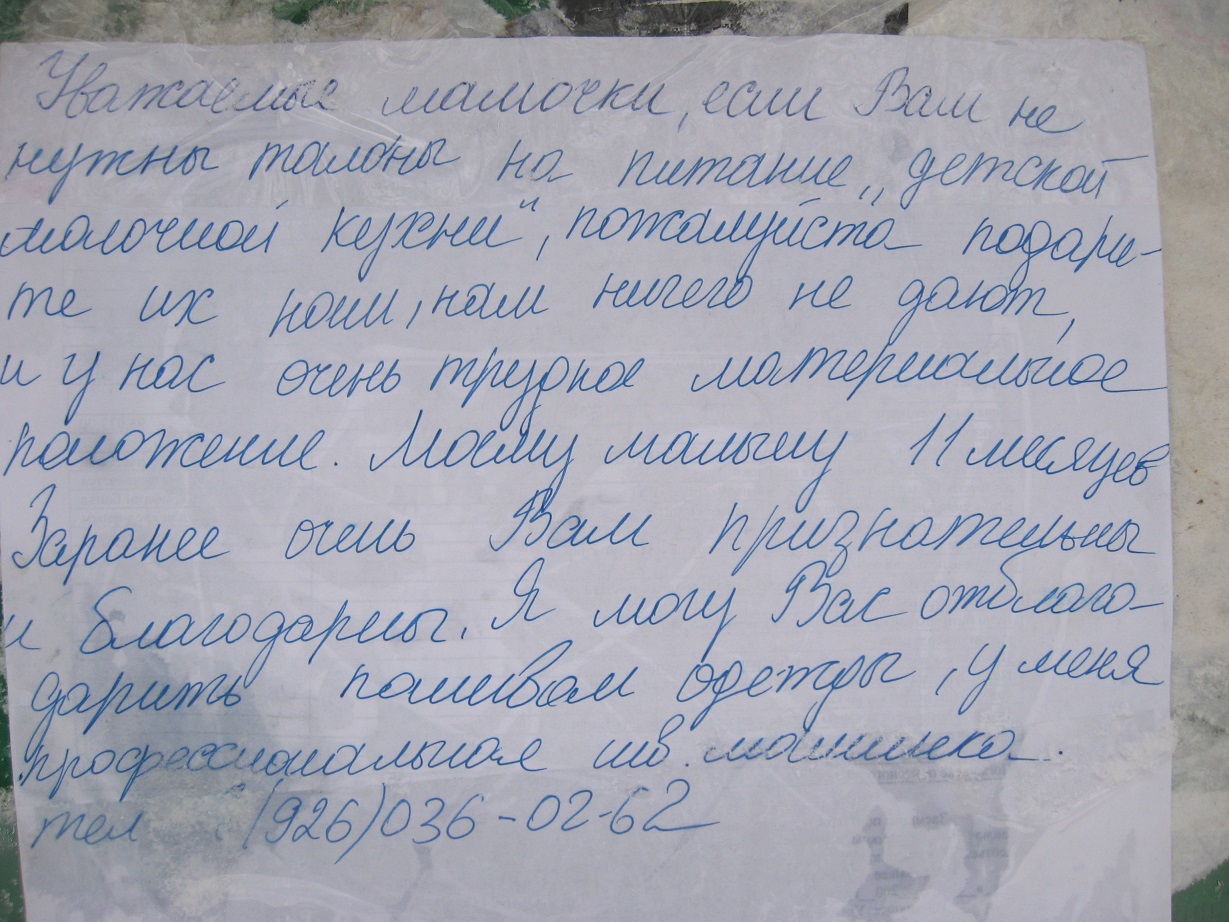 Уважаемые мамочки, если Вам не
нужны талоны на питание „детской
молочной кухни", пожалуйста подари-
те их нам, нам ничего не дают,
и у нас очень трудное материальное
положение. Моему малышу 11 месяцев
Заранее очень Вам признательны
и благодарны. Я могу Вас отблаго-
дарить пошивом одежды, у меня
профессиональная шв. машинка.
тел (926)036-02-62